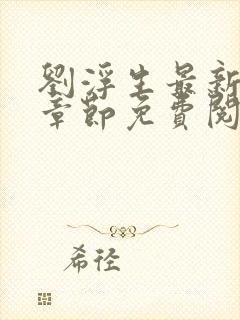 劉浮生最新
章節免費閱
希徑